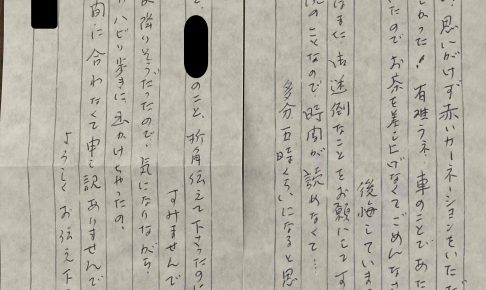 思いがけず赤いカーネーションをいただ
しかった！有難うネ。車のことであた
たのでお茶を差し上げなくてごめんなさ
後悔していま
なことをお願いしてす
のことなので時間が読めなくて…
多分五時くらいになると思
のこと、折角伝えて下さったのに
すみませんで
降りそうだったので、気になりながら、
リハビリ歩きに出かけちゃったの。
間に合わなくて申し訳ありませんで
よろしくお伝え下